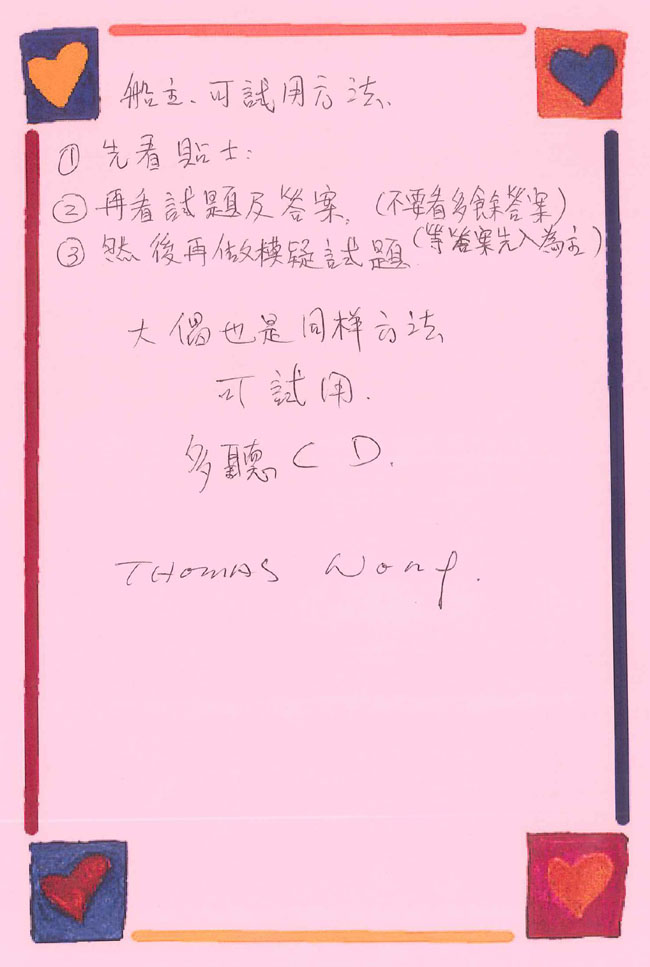 船主、可試用方法.
① 先看貼士:
② 再看試題及答案. (不要看多餘答案)
③ 然後再做模疑試題. (等答案先入為主)
大偈也是同样方法
可試用.
多聽CD.
THOMAS Wong.